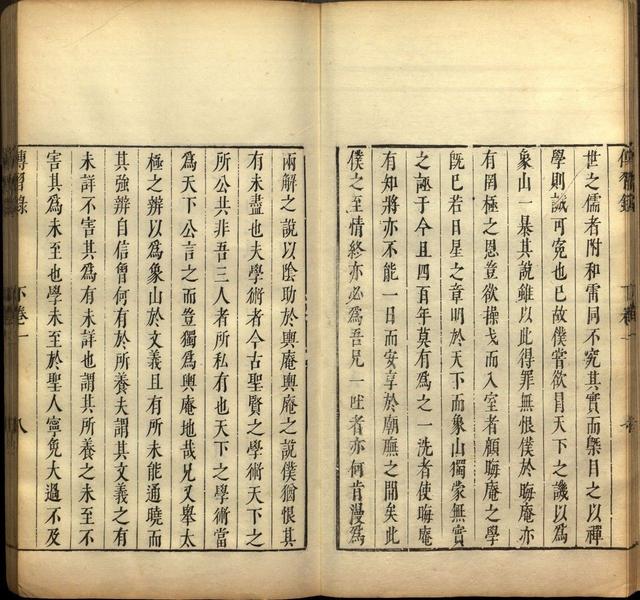 世之儒者附和雷同不究其實而槩目之以禪
學則誠可寃也已故僕嘗欲冒天下之譏以爲
象山一暴其說雖以此得罪無恨僕於晦庵亦
有罔極之恩豈欲操戈而入室者顧晦庵之學
旣已若日星之章明於天下而象山獨蒙無實
之誣于今且四百年莫有爲之一洗者使晦庵
有知將亦不能一日而安享於廟廡之間矣此
僕之至情終亦必爲吾兄一吐者亦何肯漫爲
兩解之說以陰助於輿庵輿庵之說僕猶恨其
有未盡也夫學術者今古聖賢之學術天下之
所公共非吾三人者所私有也天下之學術當
爲天下公言之而豈獨爲輿庵地哉兄又舉太
極之辨以爲象山於文義且有所未能通曉而
其強辨自信曾何有於所養夫謂其文義之有
未詳不害其爲有未詳也謂其所養之未至不
害其爲未至也學未至於聖人寧免太過不及
傳習錄 下卷一 八